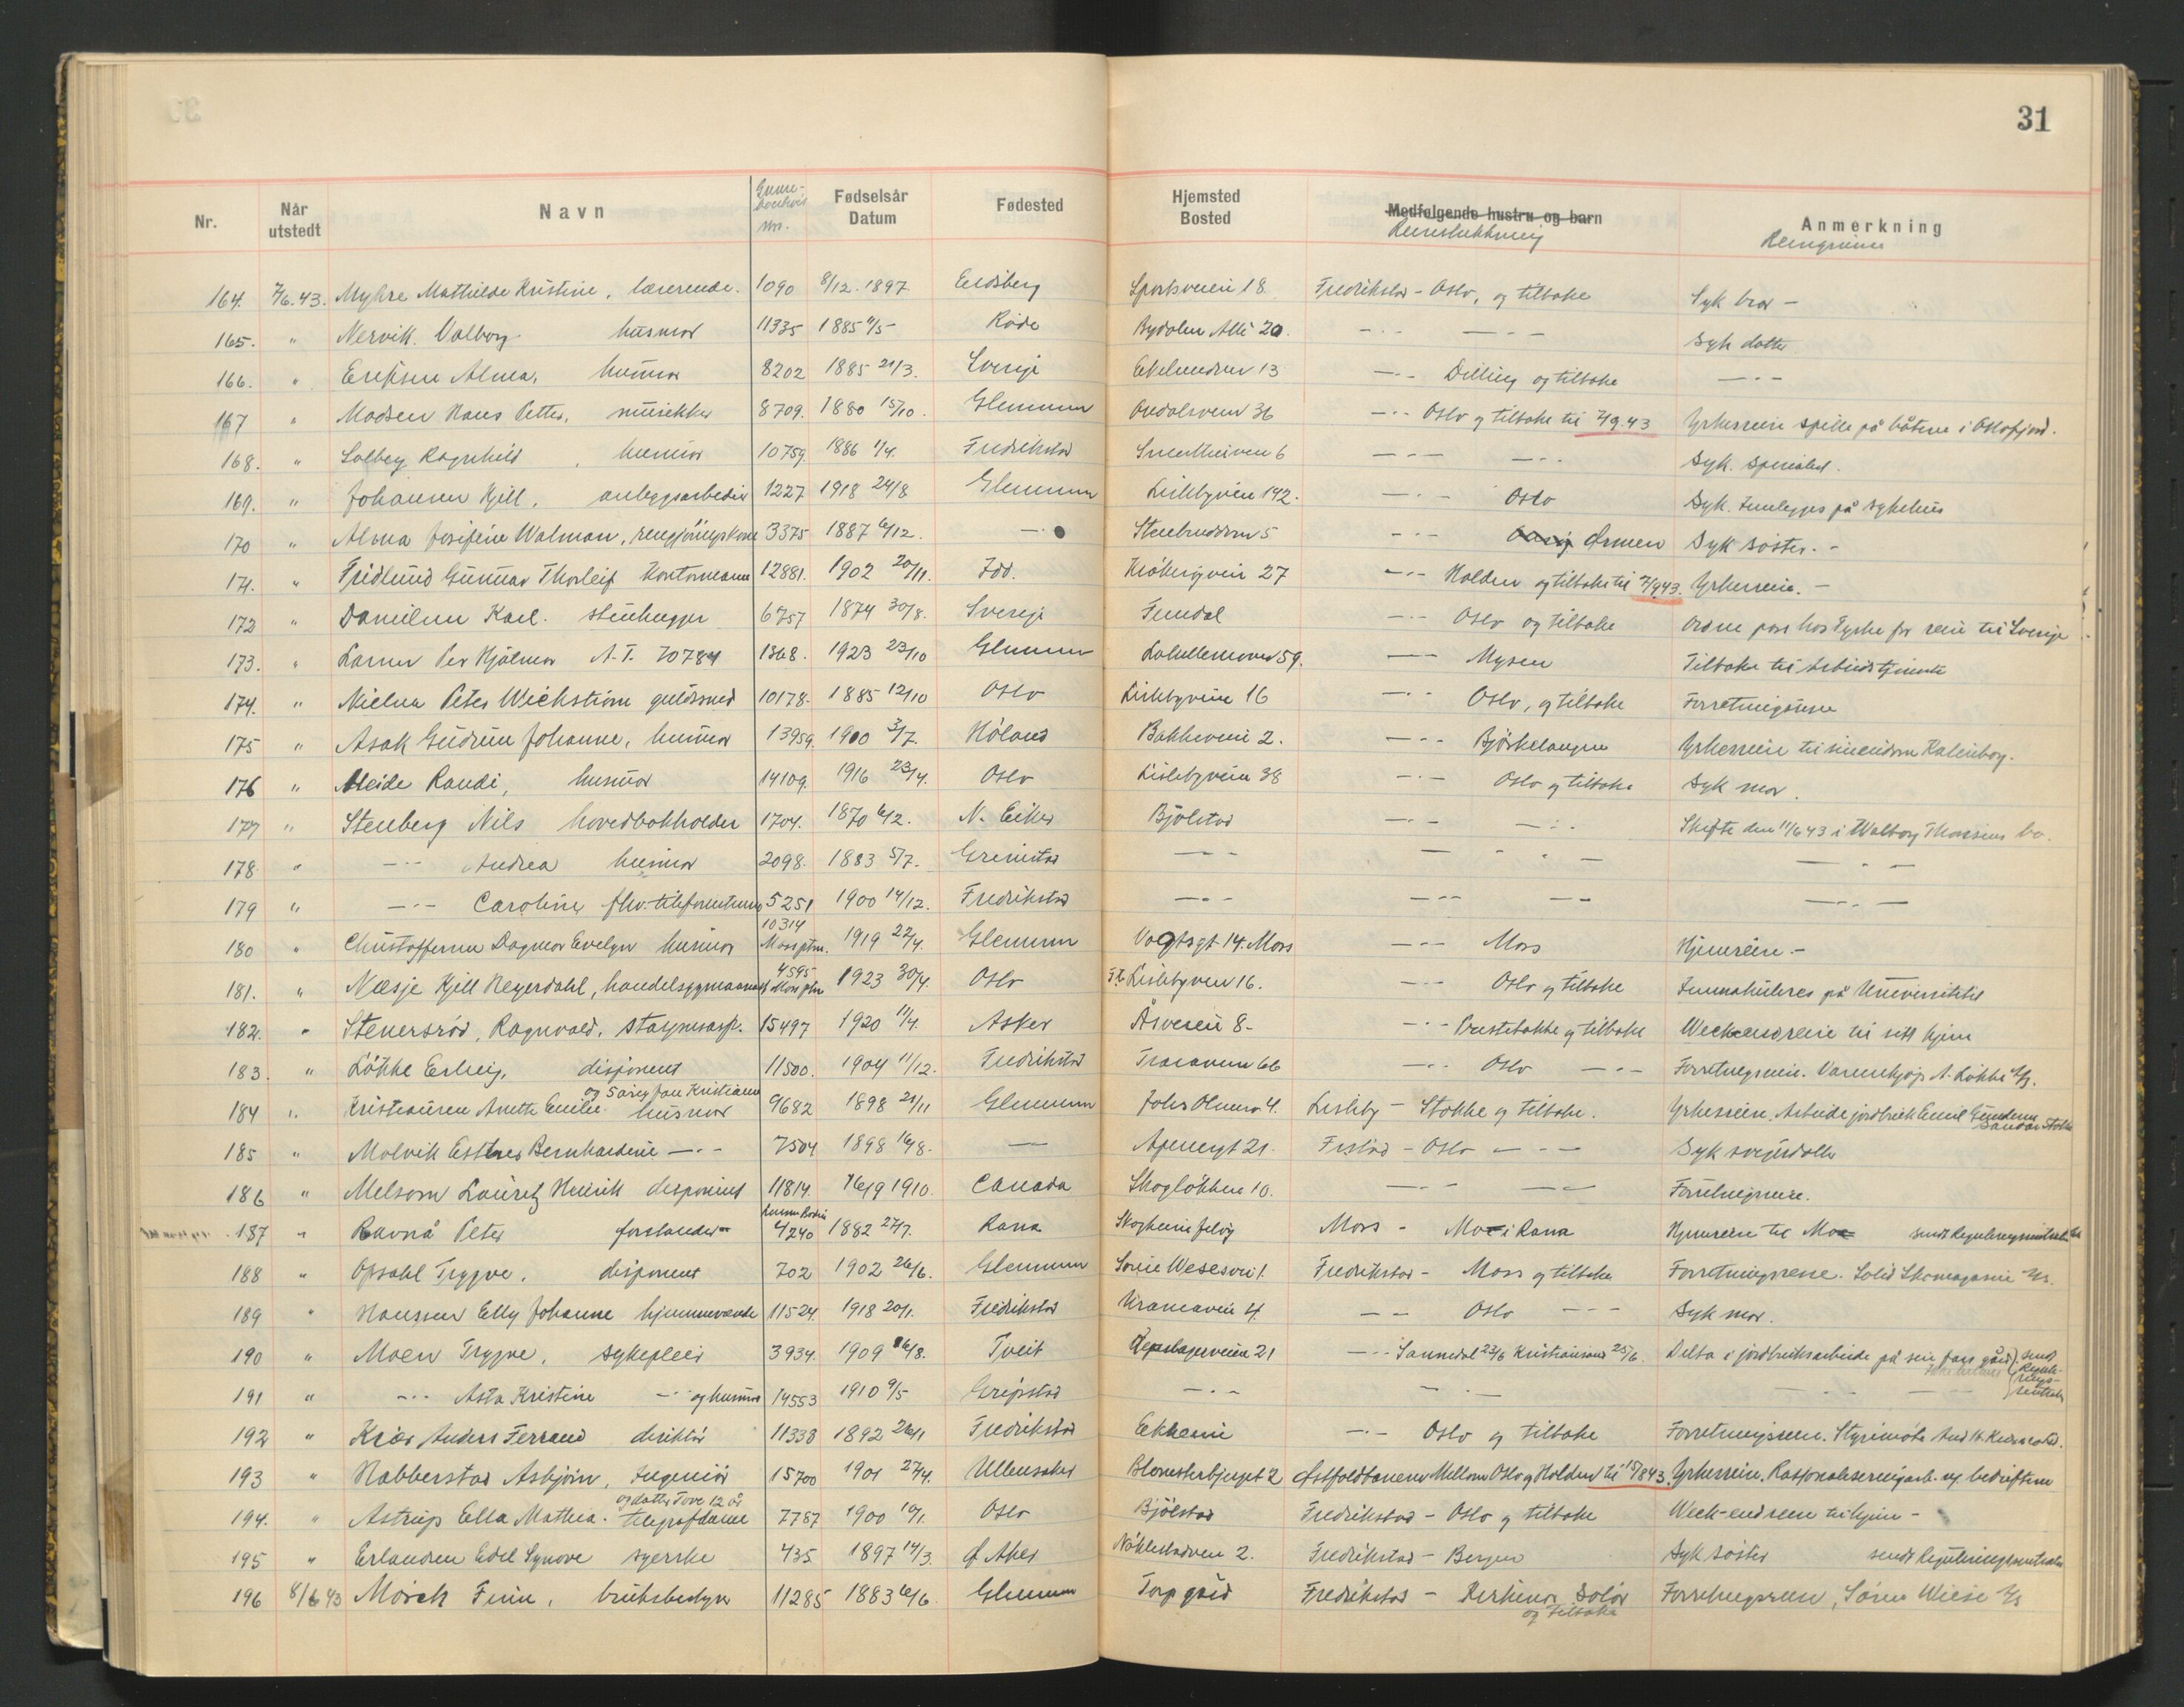 31
Nr. Når utstedt Navn Grense-boerbevis nr. Fødselsår Datum Fødested Hjemsted Bosted Medfølgende hustru og barn Reisestrekning Anmerkning
164. 7/6.43. Myhre Mathilde Kristine, lærerinde. 1090 8/12.1897 Eidsberg Sportsveien 18 Fredrikstad - Oslo, og tilbake Syk bror -
165. " Nervik Valborg husmor 11335 1885 Råde Bydalen Alle 20. -"- -"- Syk datter
166. " Eriksen Alma, husmor 8202 1885 21/3. Sverige 13 -"- Dilling og tilbake -"-
167 " Madsen Hans Petter, musikker 8709. 1880 15/10. Glemmen 36 -"- Oslo og tilbake til 7/9.43 Yrkesreise spille på båtene i Oslofjord.
168. " Solberg Ragnhild, husmor 10759. 1886 1/4. Fredrikstad 6 -"- -"- Syk. Spesialist.
169. " Johansen Kjell, anleggsarbeider 1227 1918 24/8 Glemmen Lislebyveien 142. -"- Oslo Syk. Innlegges på sykehus
170 " Alma Josefine Walman, rengjøringskone 3375 1887 6/12. -"- 5 -"- Ørmen Syk søster. -
171. " Fridlund Gunnar Thorleif Kontormann 12881. 1902 20/11. Idd. 27 -"- Halden og tilbake til 7/9 43. Yrkesreise. -
172 " Danielsen Karl. stenhugger 6757 1874 30/8. Sverige -"- Oslo og tilbake Ordne pass hos Tyske for reise til Sverige
173. " Larsen Per Hjalmar A.T. 70784 1368. 1923 23/10 Glemmen 59. -"- Mysen Tilbake til Arbeidstjeneste
174. " Nielsen Peter Wickstrøm gullsmed 10178. 1885 12/10 Oslo Lislebyveien 16 -"- Oslo, og tilbake Forretningsreise
175 " Asak Gudrun Johanne, husmor 13959. 1900 3/7. Høland Bakkeveien 2. -"- Bjørkelangen Yrkesreise til
176 " Randi, husmor 14109. 1916 23/4. Oslo Lislebyveien 38 -"- Oslo og tilbake Syk mor.
177 " Stenberg Nils hovedbokholder 1704. 1870 6/12. N. Eiker Bjølstad -"- -"- Skifte den 11/6 43 i Walborg bo.
178. " -"- Andrea husmor 2098. 1883 5/7. Grimstad -"- -"- -"-
179 " -"- Caroline 5251 1900 14/12. Fredrikstad -"- -"- -"- -"-
180 " Christoffersen Dagmar Evelyn husmor 10314 Moss ptm. 1919 22/4. Glemmen Vogtsgt 14. Moss -"- Moss Hjemreise. -
181. " Næsje Kjell Neyerdahl, handelsgymnasiast 4595 Moss ptm 1923 30/4. Oslo Lislebyveien 16. -"- Oslo og tilbake Immatrikuleres på Universitetet
182. " Stenersrød, Ragnvald. 15497 1920 11/4. Asker Åsveien 8. -"- Prestebakke og tilbake Weekendreise til sitt hjem
183. " Løkke Erling, disponent 11500. 1904 11/12. Fredrikstad Traraveien 66 -"- Oslo -"- Forretningsreise. Vareinnkjøp A. Løkke A/S.
184 " Kristiansen Anette Emilie. husmor og 5 årig Jan Kristiansen 9682 1898 21/11 Glemmen 4. Lisleby - Stokke og tilbake. Yrkesreise. Arbeide jordbruk Emil Stokke
185 " Molvik Esther Bernhardine -"- 7504 1898 16/8. -"- Apenesgt 21. Frstad - Oslo -"- Syk svigerdatter
186 " Melsom Lauritz Henrik disponent 11814. 16/9 1910. Canada Skogløkken 10. -"- -"- Forretningsreise.
187 " Ravnå Peter forstander 4240 1882 27/7. Rana Moss - Mo i Rana Hjemreise til Mo sendt Reguleringssentralen
188 " Opsahl Trygve, disponent 702 1902 26/6. Glemmen 1. Fredrikstad - Moss og tilbake Forretningsreise. Solid Skomagasin A/S.
189 " Hanssen Elly Johanne hjemmeværende 11524. 1918 20/1. Fredrikstad 4. -"- Oslo -"- Syk mor.
190 " Moen Trygve, sykepleier 3934. 1909 16/8. Tveit 21 -"- Sannidal 23/6 Kristiansand 25/6. Delta i jordbruksarbeide på sin fars gård sendt Regulerings-sentralen
191 " -"- Asta Kristine -"- og husmor 14553 1910 9/5 Gripstad -"- -"- -"-
192 " Kiær Anders Ferrand direktør 11338 1892 26/1 Fredrikstad Ekheim -"- Oslo og tilbake Forretningsreise. Styremøte And. H. Kiær & Co.
193 " Nabberstad Asbjørn, Ingeniør 15700 1901 27/4. Ullensaker 2 Østfoldbanen Mellom Oslo og Halden til 15/8 43. Yrkesreise. Rasjonaliseringsarb. ny bedriftene
194. " Astrup Ella Mathea. telegrafdame og datter Tove 12 år 7787 1900 10/1. Oslo Bjølstad Fredrikstad - Oslo og tilbake Week-endreise til hjem -
195 " Erlandsen Edel Synøve syerske 435 1897 14/3. Ø. Aker 2. Fredrikstad - Bergen Syk søster sendt Reguleringssentralen
196 8/6 43 Mørch Finn, bruksbestyrer 11285 1883 6/6. Glemmen Torp gård Fredrikstad - Kirkenær Solør og tilbake Forretningsreise, Søren Wiese A/S